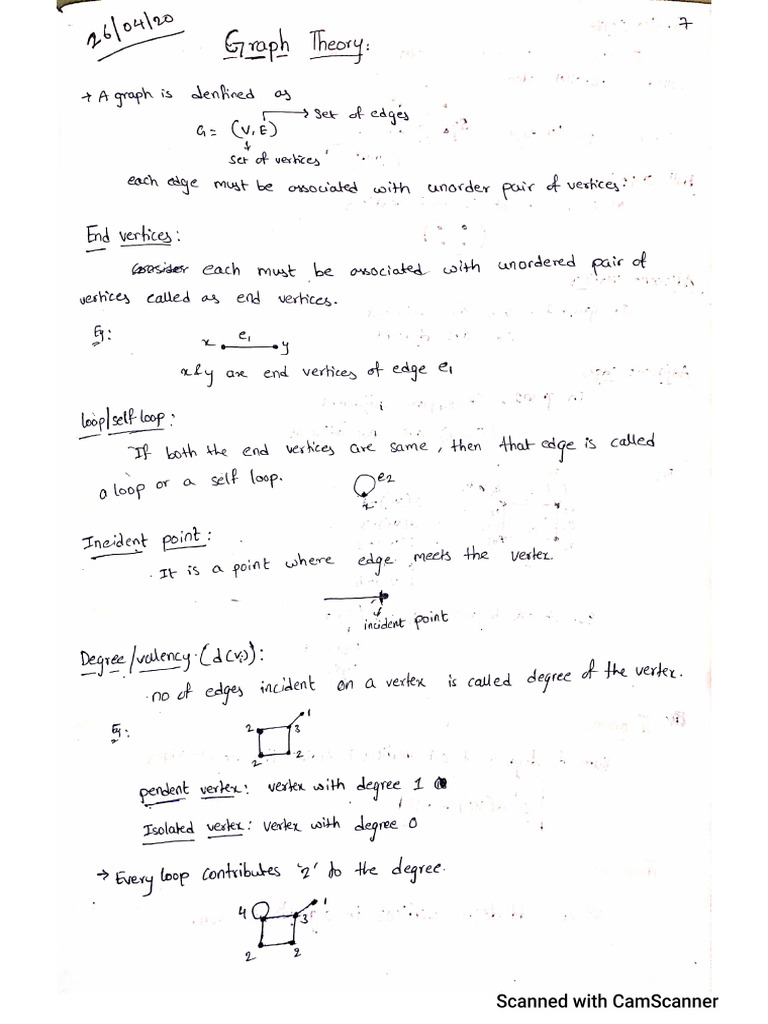 26/04/20
7
Graph Theory:
→ A graph is denfined as
G = (V, E) → set of edges
↓
set of vertices
each edge must be associated with unorder pair of vertices.
End vertices:
each must be associated with unordered pair of
vertices called as end vertices.
Eg:
x e1 y
x & y are end vertices of edge e1
loop/self loop:
If both the end vertices are same, then that edge is called
a loop or a self loop.
e2
Incident point:
It is a point where edge meets the vertex.
incident point
Degree/valency (d(vi)):
no of edges incident on a vertex is called degree of the vertex.
Eg:
1
2 3
2 2
pendent vertex: vertex with degree 1
Isolated vertex: vertex with degree 0
→ Every loop contributes '2' to the degree.
4 3 1
2 2
Scanned with CamScanner